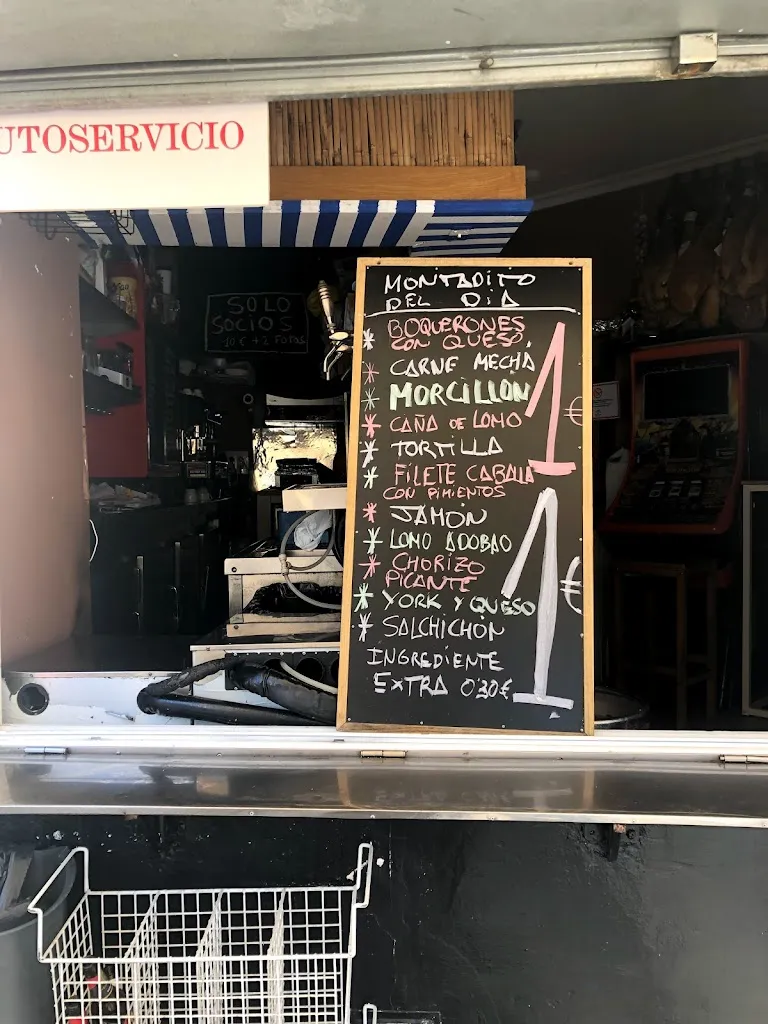 UTOSERVICIO
SOLO
SOCIOS
MONTADITO
DEL DIA
* BOQUERONES
CON QUESO,
* CARNE MECHA
* MORCILLON
* CAÑA DE LOMO
* TORTILLA
* FILETE CABALLA
CON PIMIENTOS
1€
* JAMÓN
* LOMO ADOBAO
* CHORIZO
PICANTE
* YORK Y QUESO
* SALCHICHÓN
INGREDIENTE
EXTRA 0'30€
1€